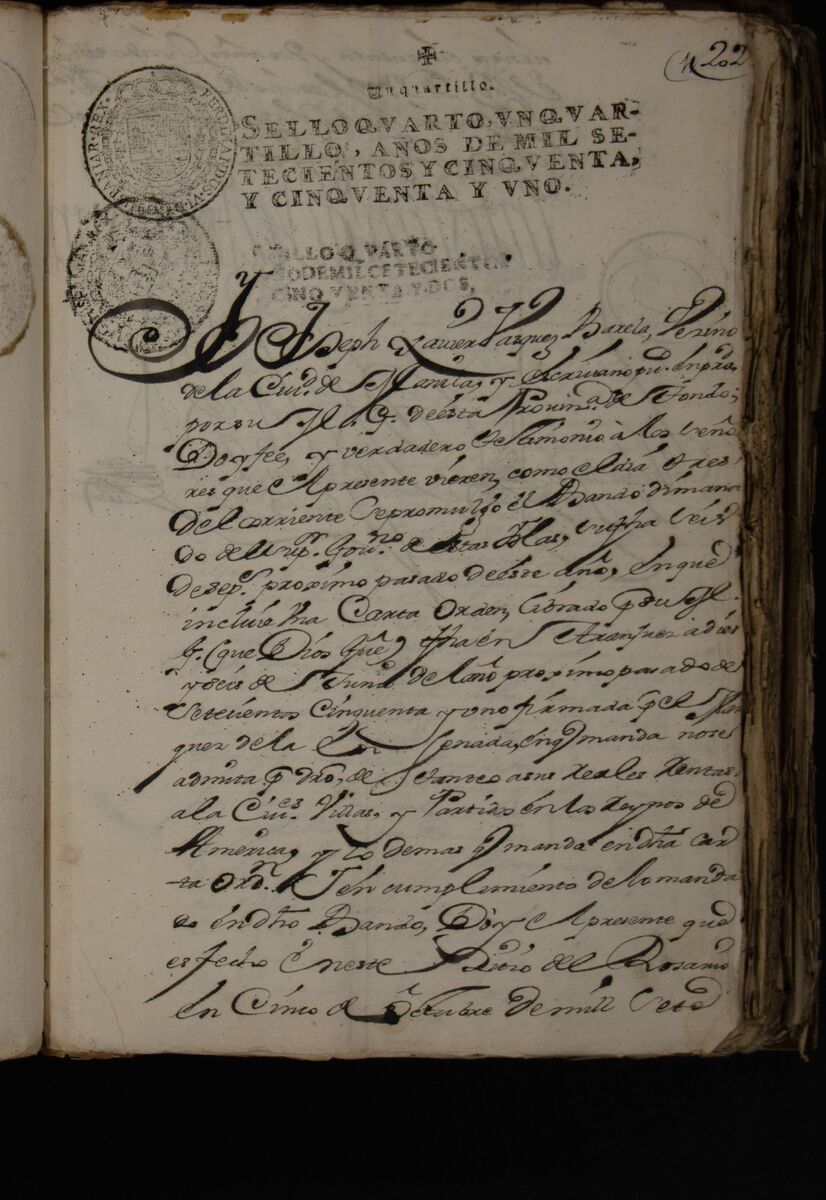 202
Un quartillo.
SELLO QVARTO, VN QVAR-
TILLO, AÑOS DE MIL SE-
TECIENTOS Y CINQVENTA,
Y CINQVENTA Y VNO.
SELLO QVARTO
AÑO DE MIL CETECIENTOS
CINQVENTA Y DOS,
Yo Joseph Xavier Vazquez Barela, Vezino
de la Ciud. de Manila, y Escrivano pu.
por su Mg. de esta Provin.a de Tondo;
Doy fee, y verdadero testimonio à los Seño
res que el presente vieren, como el dia tres
del corriente se promulgó el Bando dimana
do de Sup.r Gov.no de estas Islas, su fha Seis
de sep.e proximo pasado de este año, en que
incluie Una Carta Orden, librado p su M.
(que Dios Gue) fha en Aranjuez a dies
y seis de Junio del año proximo pasado de
Setecientos Cinquenta y uno firmada p el Mar
quez de la Ensenada, en q manda no se
admita p dro, de tanteo a sus Reales Rentas
a la Ciu.es Villas, y Partidos en los Reynos de
America, y lo demas q manda en dha car
ta Orn. Y en cumplimiento de lo manda
do en dho Bando, Doy el presente que
es fecho en este Sitio del Rosario
en Cinco de Octubre de mill Sete